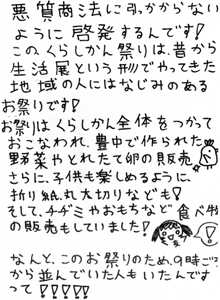 悪質商法に引っかからない
ように啓発するんです!
このくらしかん祭りは昔から
生活展という形でやってきた
地域の人にはなじみのある
お祭りです!
お祭りはくらしかん全体をつかって
おこなわれ、豊中で作られた
野菜やとれたて卵の販売
さらに、子供も楽しめるように
折り紙、丸太切りなども!
そして、チヂミやおもちなど食べ物
の販売もしていました!
なんと、このお祭りのため、9時ごろ
から並んでいた人もいたんです
って!!!!!